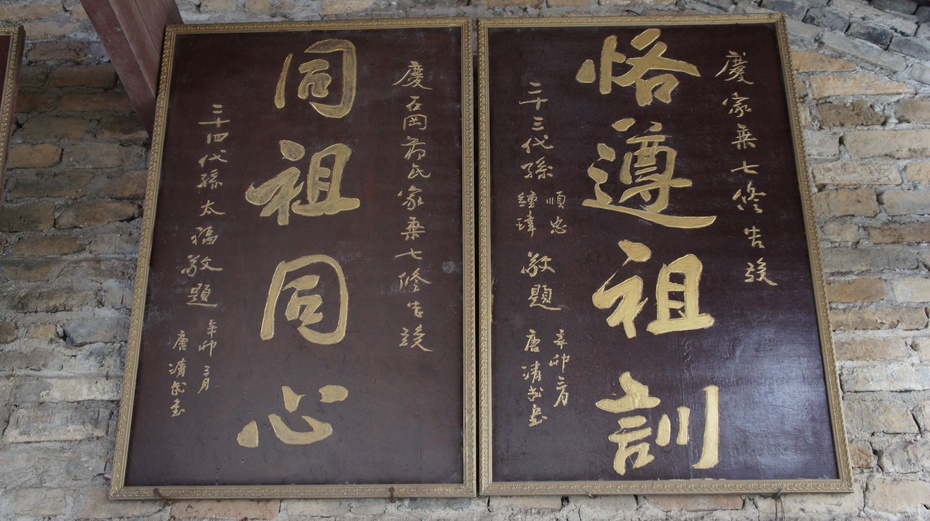 慶家乘七修告竣
恪遵祖訓
二十三代孫
順忠
鐘瑋
敬題
辛卯二月
唐清武書
慶岡氏家乘七修告竣
同祖同心
二十四代孫太福敬題
辛卯月
唐清武書